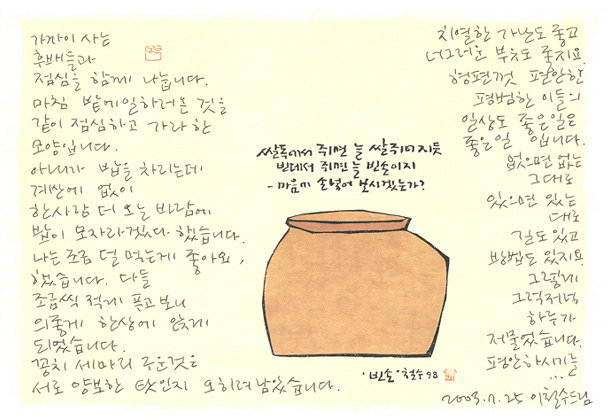 가까이 사는
후배들과
점심을 함께 나눕니다.
마침 밭에 일하러 온 것을
같이 점심하고 가라 한
모양입니다.
아내가 밥을 차리는데
계산에 없이
한사람 더 오는 바람에
밥이 모자라겠다 했습니다.
나는 조금 덜 먹는게 좋아요,
했습니다. 다들
조금씩 적게 푸고 보니
의좋게 한상에 앉게
되었습니다.
꽁치 세마리 구운것은
서로 양보한 탓인지 오히려 남았습니다.
쌀독에서 쥐면 늘 쌀 쥐이지듯
빈데서 쥐면 늘 빈손이지
- 마음에 손 넣어 보시겠는가?
'빈손' 철수 98
치열한 가난도 좋고
너그러운 부유도 좋지요.
형편껏 편안한
평범한 이들의
일상도 좋은일은
좋은일 입니다.
없으면 없는
그대로
있으면 있는
대로
길도 있고
방법도 있지요.
그렇게
그럭저럭
하루가
저물었습니다.
편안하시기를
...
2003.7.25 이철수드림